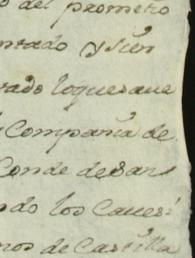 del prometio
ntado y sien
tado loquesaue
Compania de
Conde de san
ndo los Caues
nos de Castilla